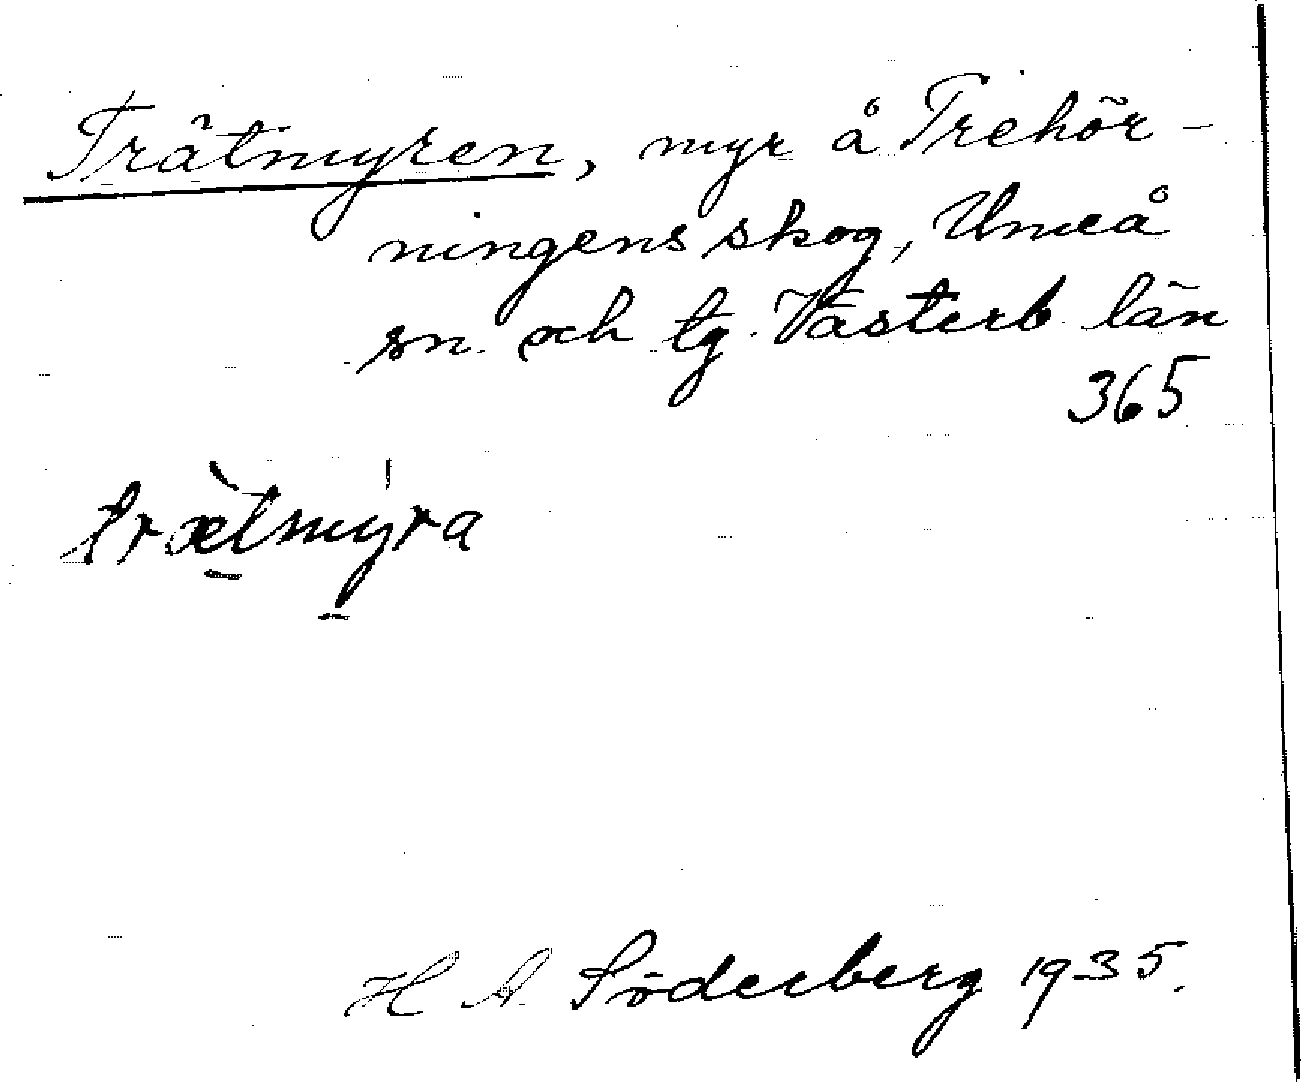 Trätmyren, myr å Trehör-
ningens skog, Umeå
sn. och tg. Västerb. län
365
trætmyra
H A Söderberg 1935.